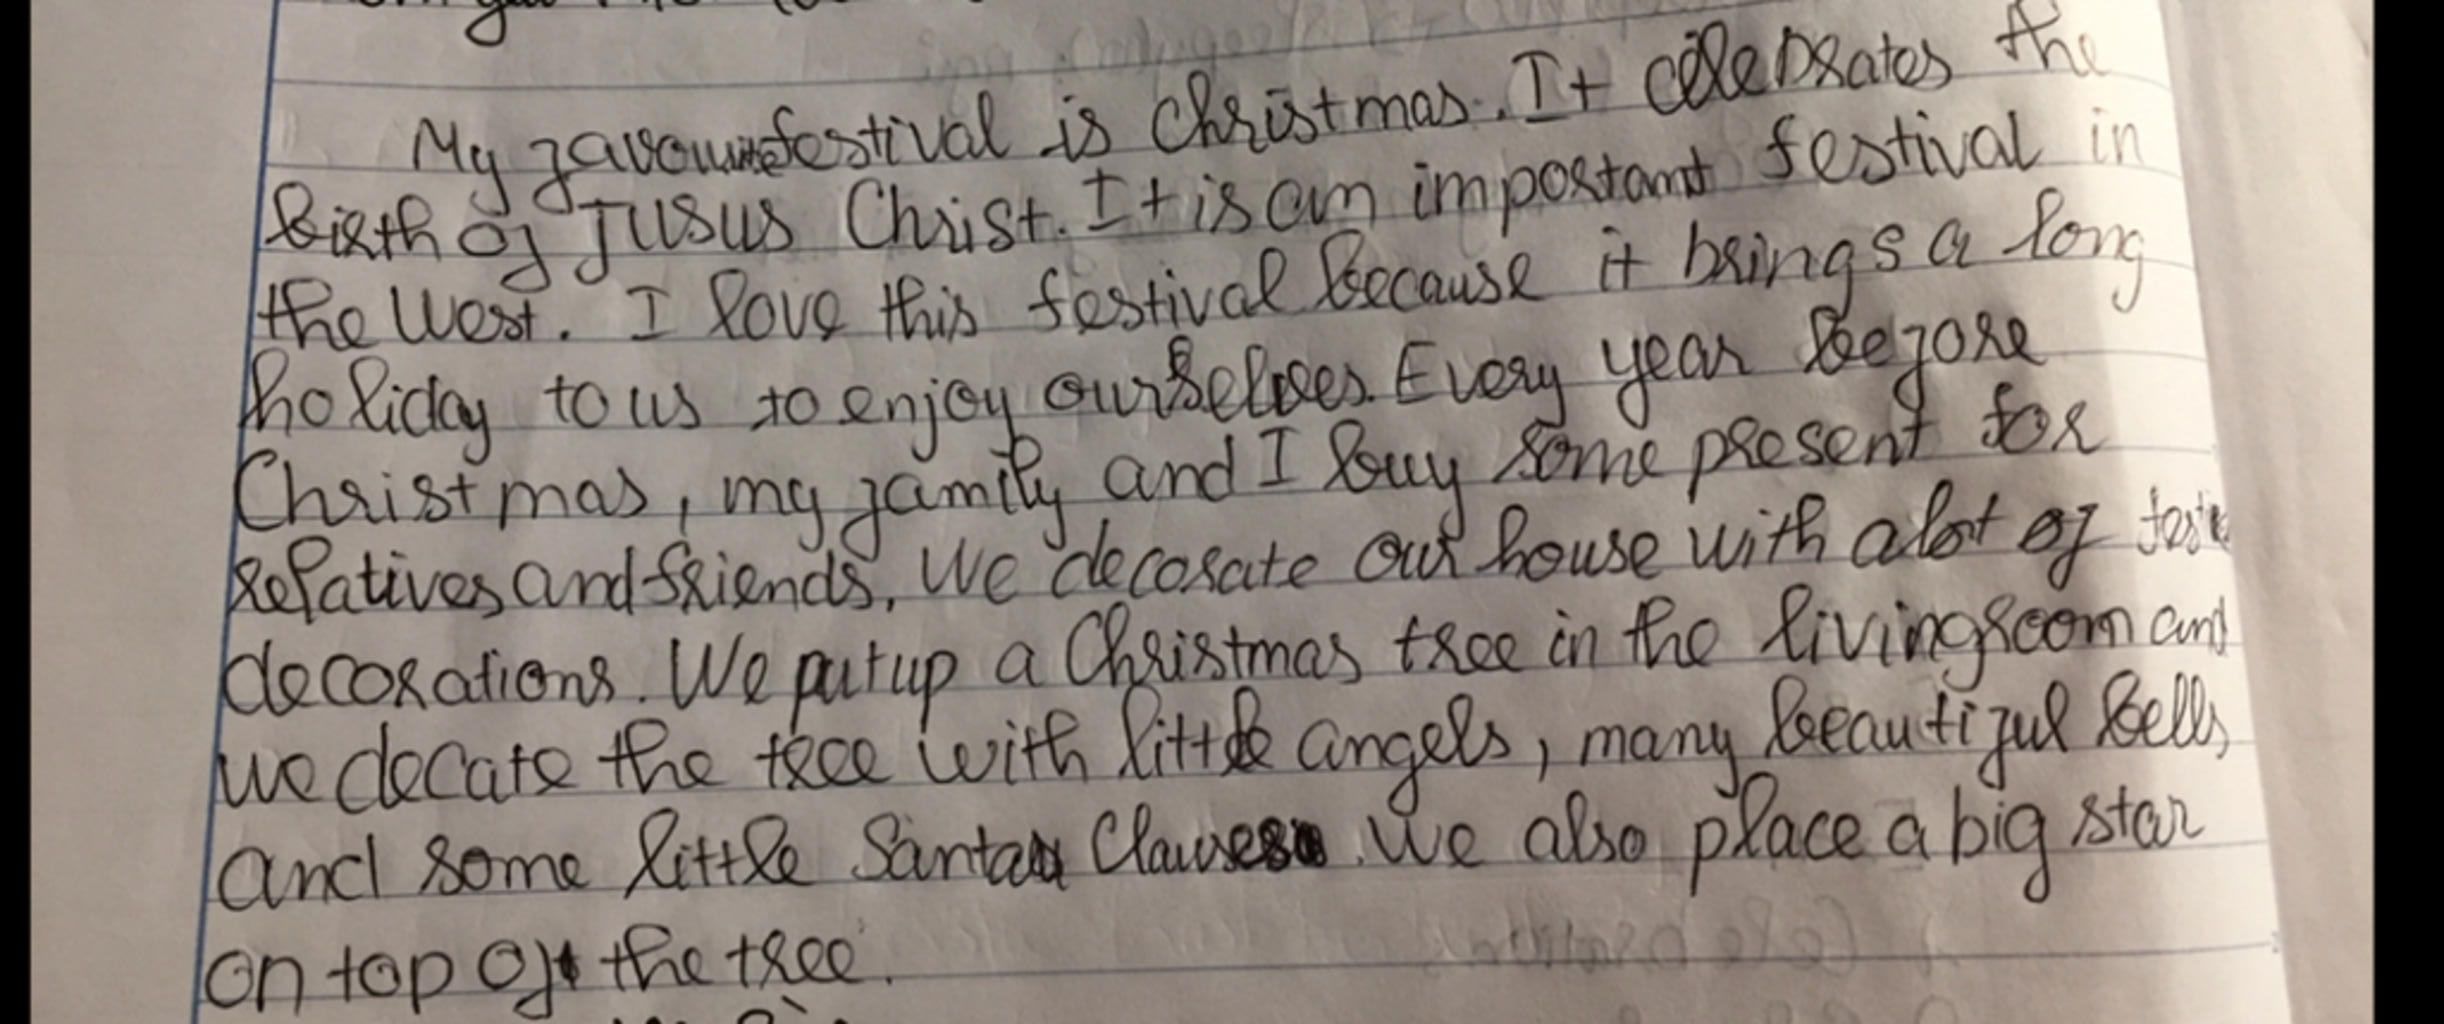 My favourite festival is Christmas. It celebrates the
birth of Jusus Christ. It is an important festival in
the West. I love this festival because it brings a long
holiday to us to enjoy ourselves. Every year before
Christmas, my family and I buy some present for
relatives and friends. We decorate our house with a lot of
decorations. We put up a Christmas tree in the living room and
we decate the tree with little angels, many beautiful bells,
and some little Santa Clauses. We also place a big star
on top of the tree.